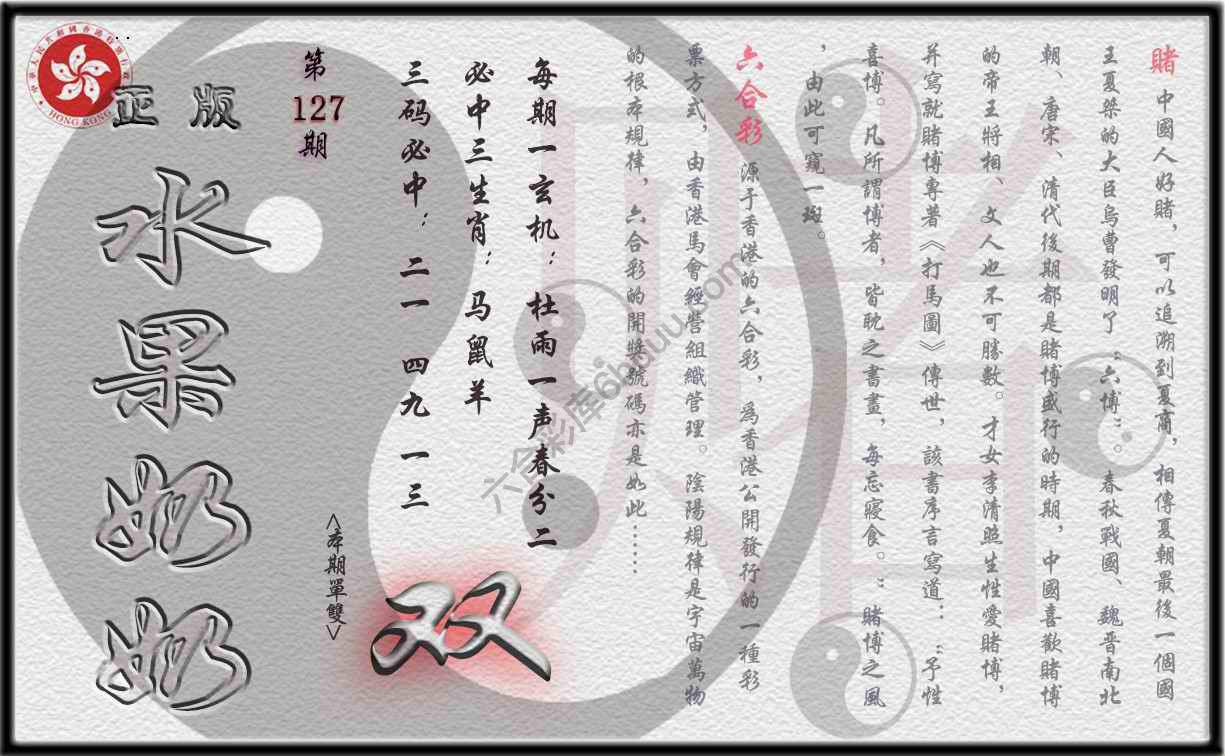 賭 中國人好賭，可以追溯到夏商，相傳夏朝最後一個國
王夏桀的大臣烏曹發明了“六博”。春秋戰國、魏晋南北
朝、唐宋、清代後期都是賭博盛行的時期，中國喜歡賭博
的帝王將相、文人也不可勝數。才女李清照生性愛賭博，
并寫就賭博專著《打馬圖》傳世，該書序言寫道：“予性
喜博。凡所謂博者，皆耽之書畫，每忘寢食。”賭博之風
，由此可窺一斑。
六合彩 源于香港的六合彩，爲香港公開發行的一種彩
票方式，由香港馬會經營組織管理。陰陽規律是宇宙萬物
的根本規律，六合彩的開獎號碼亦是如此……
每期一玄机：杜雨一声春分二
必中三生肖：马鼠羊
三码必中：二一 四九 一三
<本期單雙>
双
第
127
期
正版
水果奶奶
HONG KONG
六合彩库6huuu.com